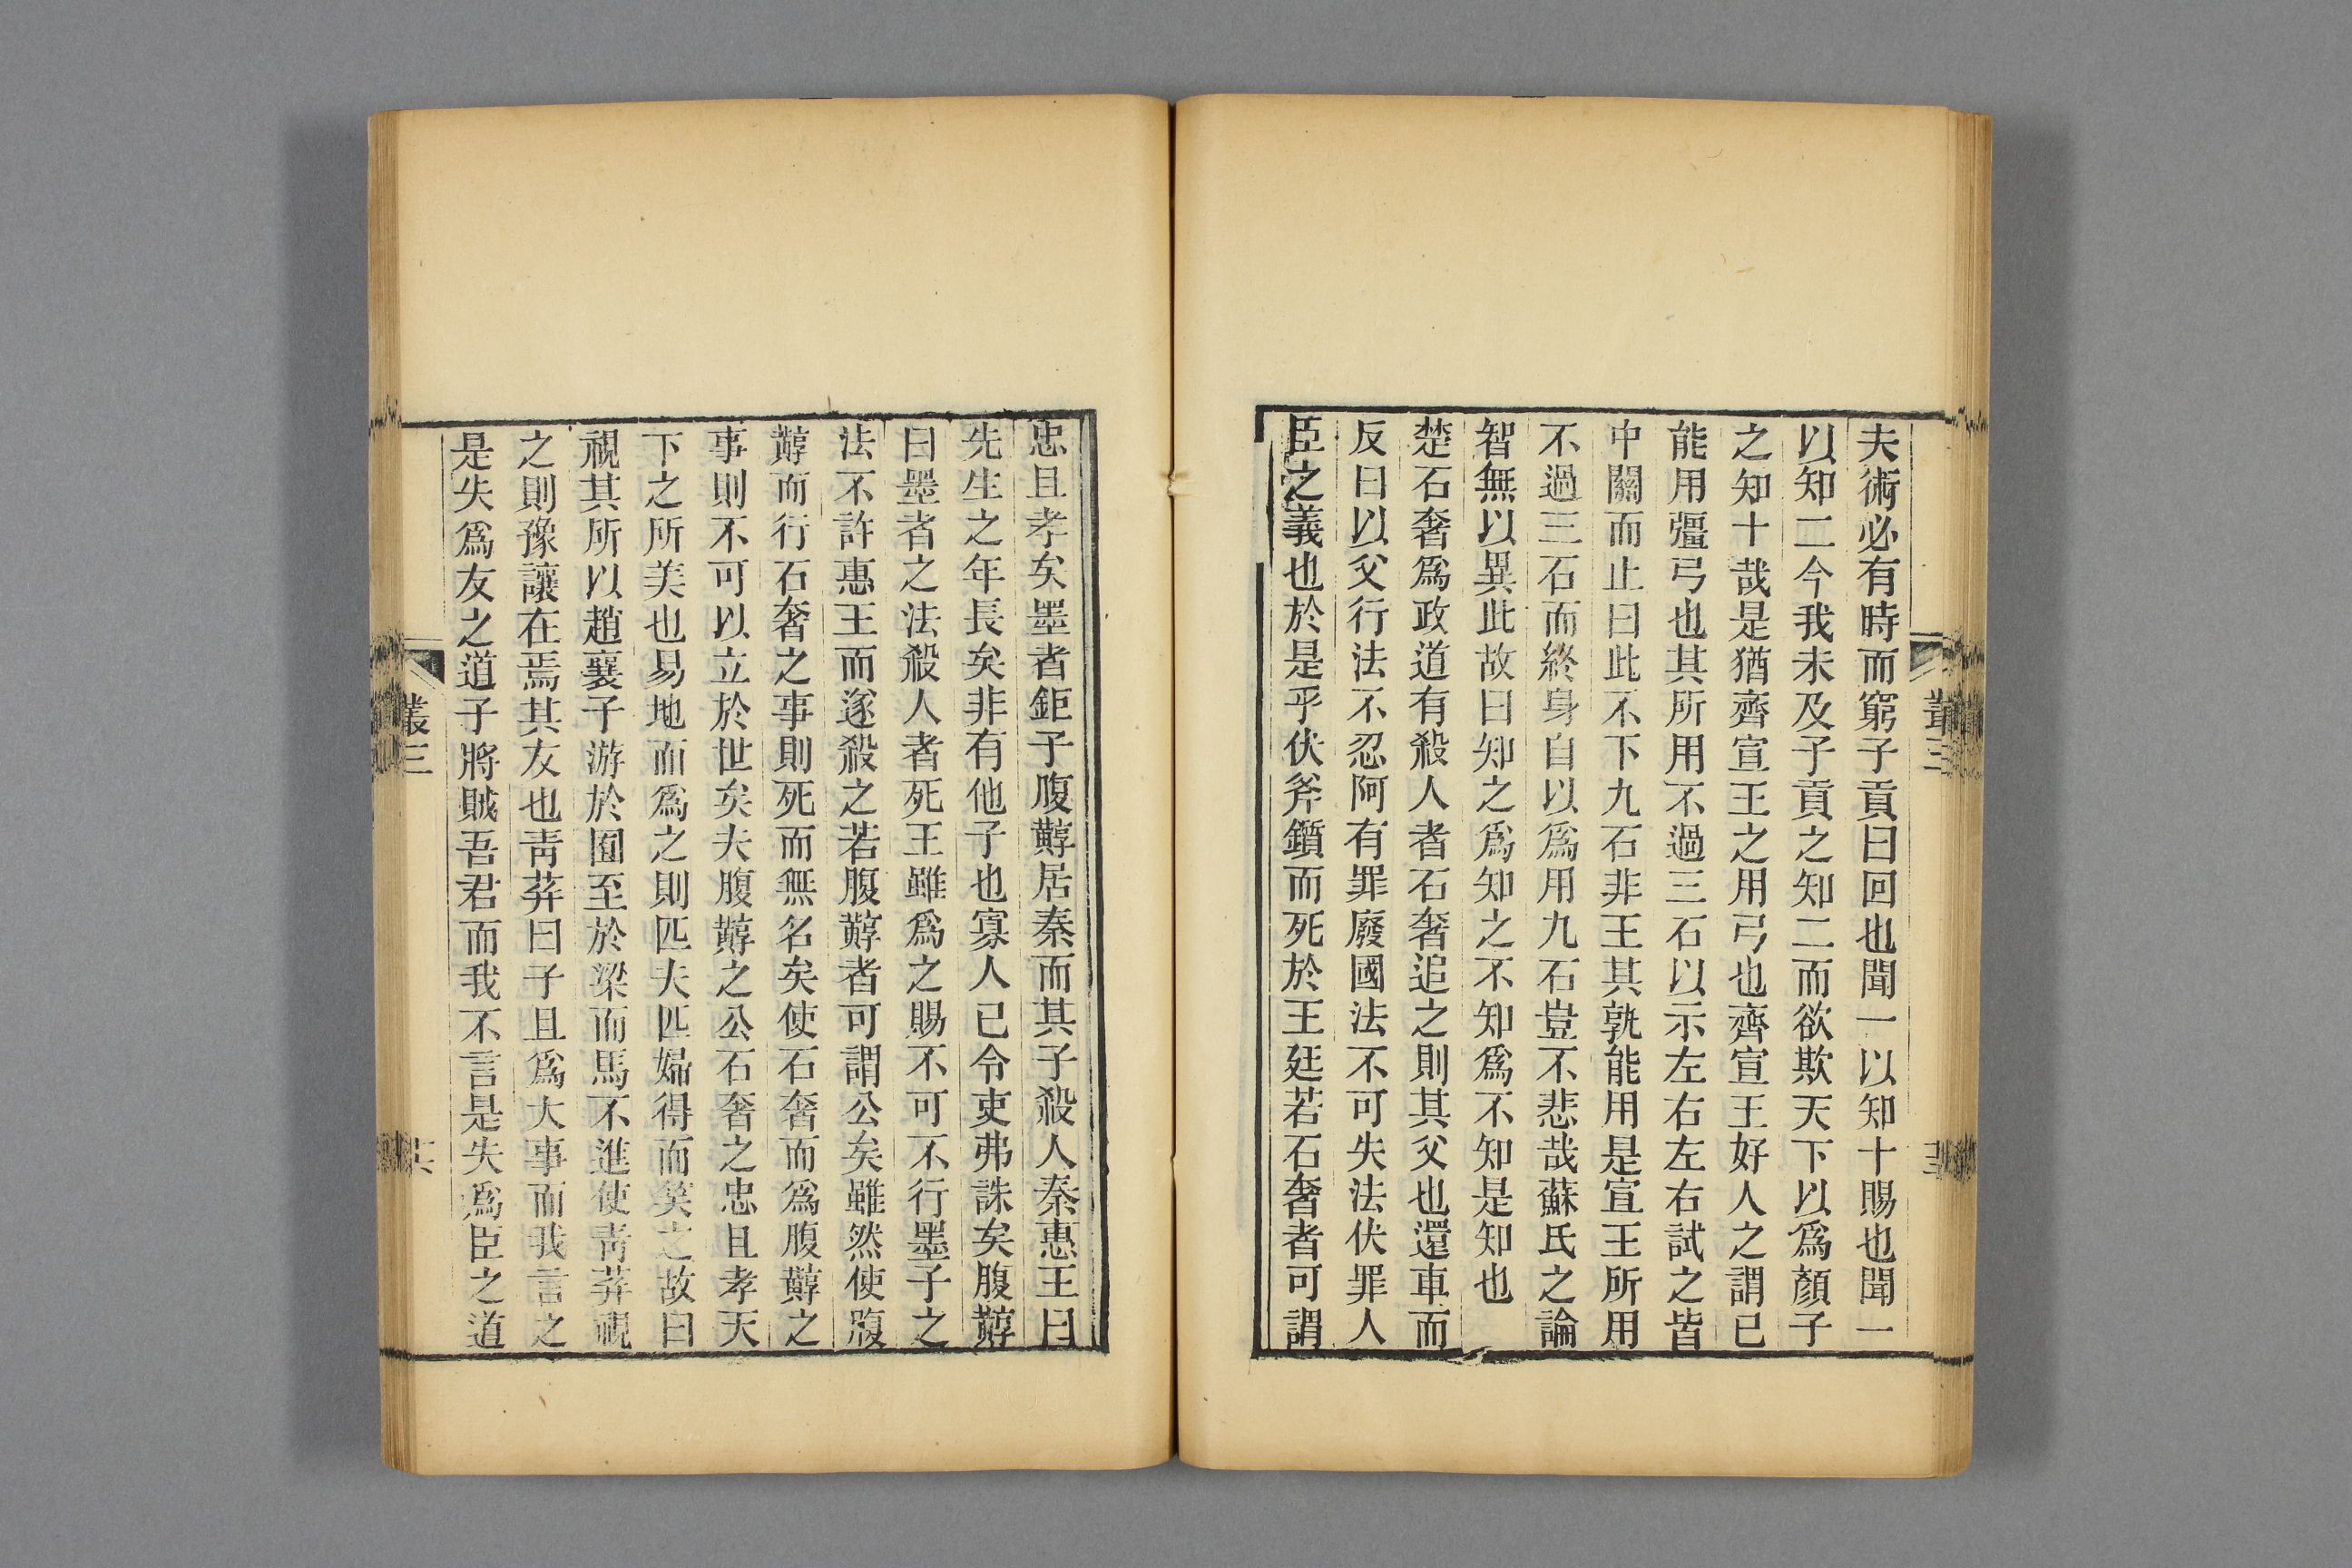 夫術必有時而窮子貢曰回也聞一以知十賜也聞一
以知二今我未及子貢之知二而欲欺天下以爲顏子
之知十哉是猶齊宣王之用弓也齊宣王好人之謂已
能用彊弓也其所用不過三石以示左右左右試之皆
中關而止曰此不下九石非王其孰能用是宣王所用
不過三石而終身自以爲用九石豈不悲哉蘇氏之論
智無以異此故曰知之爲知之不知爲不知是知也
楚石奢爲政道有殺人者石奢追之則其父也還車而
反曰以父行法不忍阿有罪廢國法不可失法伏罪人
臣之義也於是乎伏斧鑕而死於王廷若石奢者可謂
忠且孝矣墨者鉅子腹䵍居秦而其子殺人秦惠王曰
先生之年長矣非有他子也寡人已令吏弗誅矣腹䵍
曰墨者之法殺人者死王雖爲之賜不可不行墨子之
法不許惠王而遂殺之若腹䵍者可謂公矣雖然使腹
䵍而行石奢之事則死而無名矣使石奢而爲腹䵍之
事則不可以立於世矣夫腹䵍之公石奢之忠且孝天
下之所美也易地而爲之則匹夫匹婦得而笑之故曰
視其所以趙襄子游於囿至於梁而馬不進使青荓視
之則豫讓在焉其友也青荓曰子且爲大事而我言之
是失爲友之道子將賊吾君而我不言是失爲臣之道
叢三